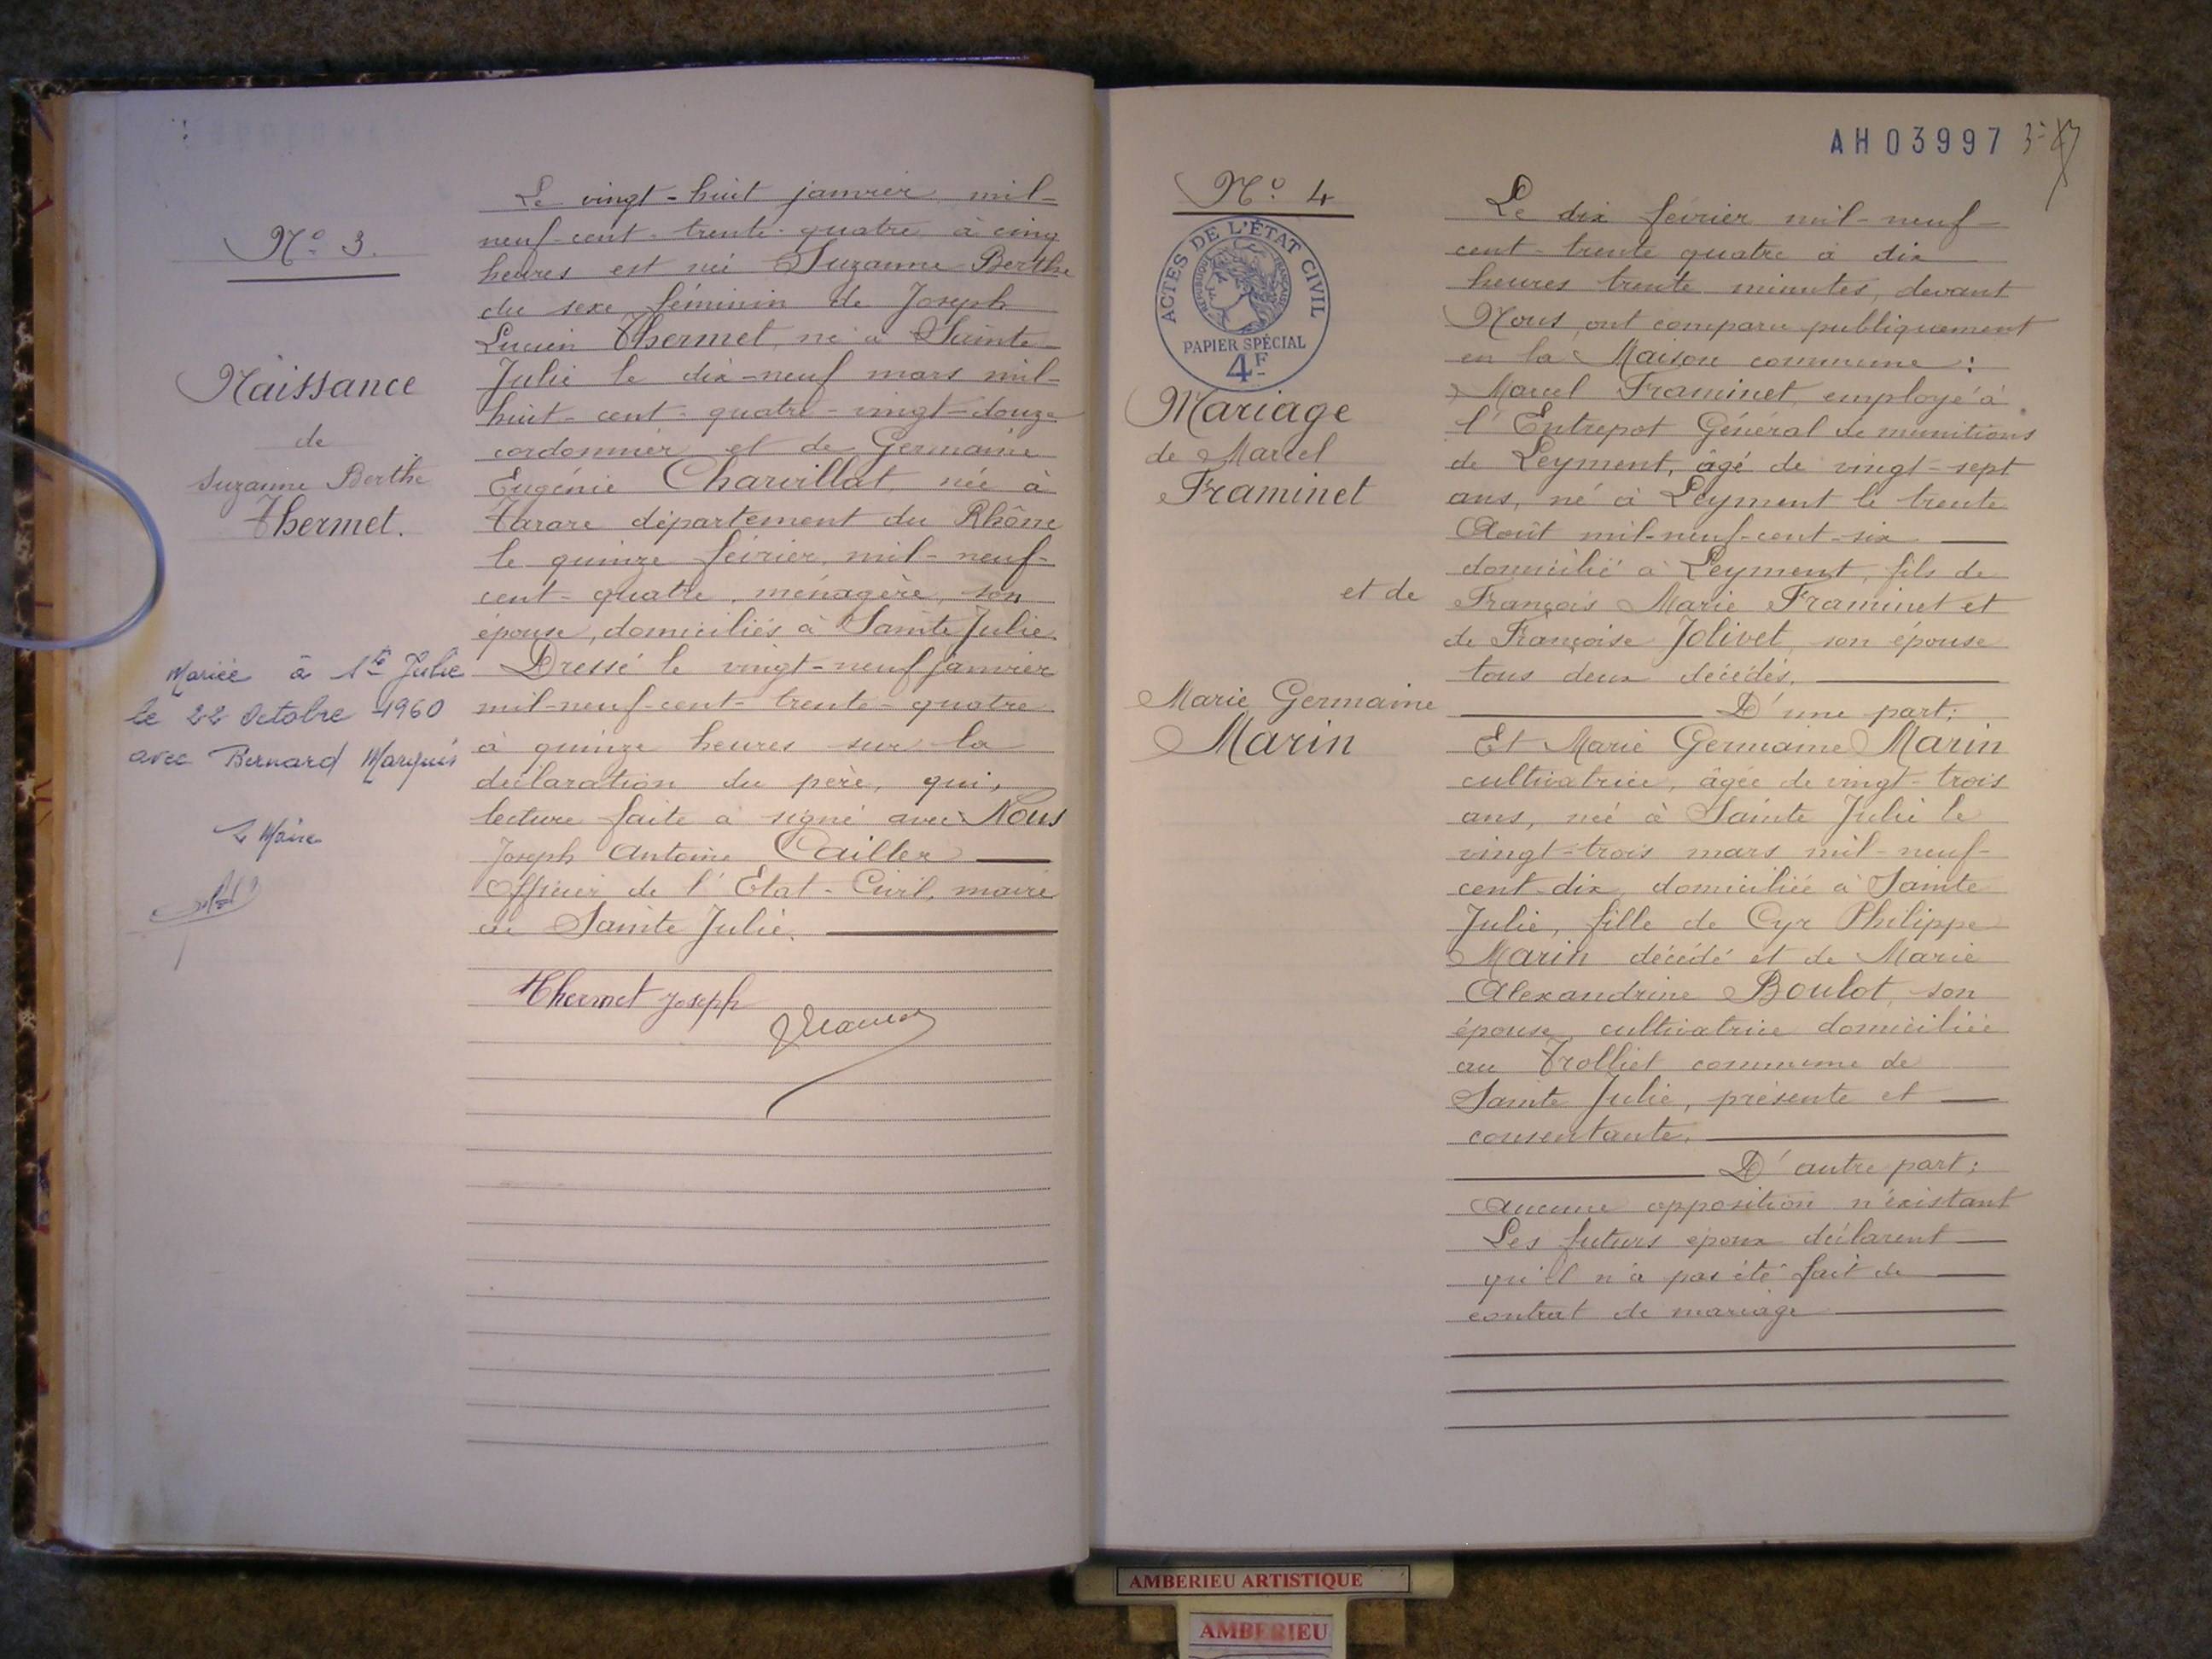 N° 3.
Naissance
de
Suzanne Berthe
Thermet.
Mariée à Ste Julie
le 22 Octobre 1960
avec Bernard Marquis
Le Maire
Le vingt-huit janvier mil-
neuf-cent-trente-quatre à cinq
heures est née Suzanne Berthe
du sexe féminin de Joseph
Lucien Thermet, né à Sainte-
Julie le dix-neuf mars mil-
huit-cent-quatre-vingt-douze
cordonnier et de Germaine
Eugénie Charvillat, née à
Tarare département du Rhône
le quinze février mil-neuf-
cent-quatre, ménagère, son
épouse, domiciliés à Sainte Julie.
Dressé le vingt-neuf janvier
mil-neuf-cent-trente-quatre
à quinze heures sur la
déclaration du père, qui,
lecture faite a signé avec Nous
Joseph Antoine Cailler
Officier de l'Etat-Civil, maire
de Sainte Julie.
Thermet Joseph
AH03997
N° 4
ACTES DE L'ÉTAT CIVIL
RÉPUBLIQUE FRANÇAISE
PAPIER SPÉCIAL
4F
Mariage
de Marcel
Framinet
et de
Marie Germaine
Marin
Le dix février mil-neuf-
cent-trente quatre à dix
heures trente minutes, devant
Nous, ont comparu publiquement
en la Maison commune :
Marcel Framinet employé à
l'Entrepot Général de munitions
de Leyment, âgé de vingt-sept
ans, né à Leyment le trente
Août mil-neuf-cent-six
domicilié à Leyment, fils de
François Marie Framinet et
de Françoise Jolivet, son épouse
tous deux décédés.
D'une part;
Et Marie Germaine Marin
cultivatrice, âgée de vingt-trois
ans, née à Sainte Julie le
vingt-trois mars mil-neuf-
cent-dix, domiciliée à Sainte
Julie, fille de Cyr Philippe
Marin décédé et de Marie
Alexandrine Boulot, son
épouse, cultivatrice domiciliée
au Trolliet commune de
Sainte Julie, présente et
consentante.
D'autre part;
Aucune opposition n'existant
Les futurs époux déclarent
qu'il n'a pas été fait de
contrat de mariage
AMBERIEU ARTISTIQUE
AMBERIEU